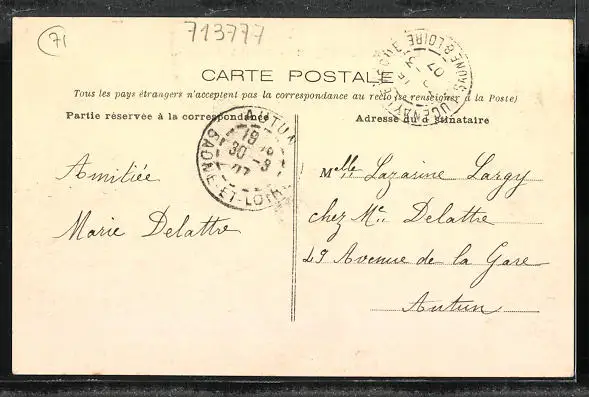 71
713777
CARTE POSTALE
Tous les pays étrangers n'acceptent pas la correspondance au recto (se renseigner à la Poste)
Partie réservée à la correspondance
Adresse du destinataire
AUTUN
30 -3
07
SAONE-ET-LOIRE
SAONE & LOIRE
07
Amitiée
Marie Delattre
Melle Lazarine Largy
chez Me Delattre
49 Avenue de la Gare
Autun